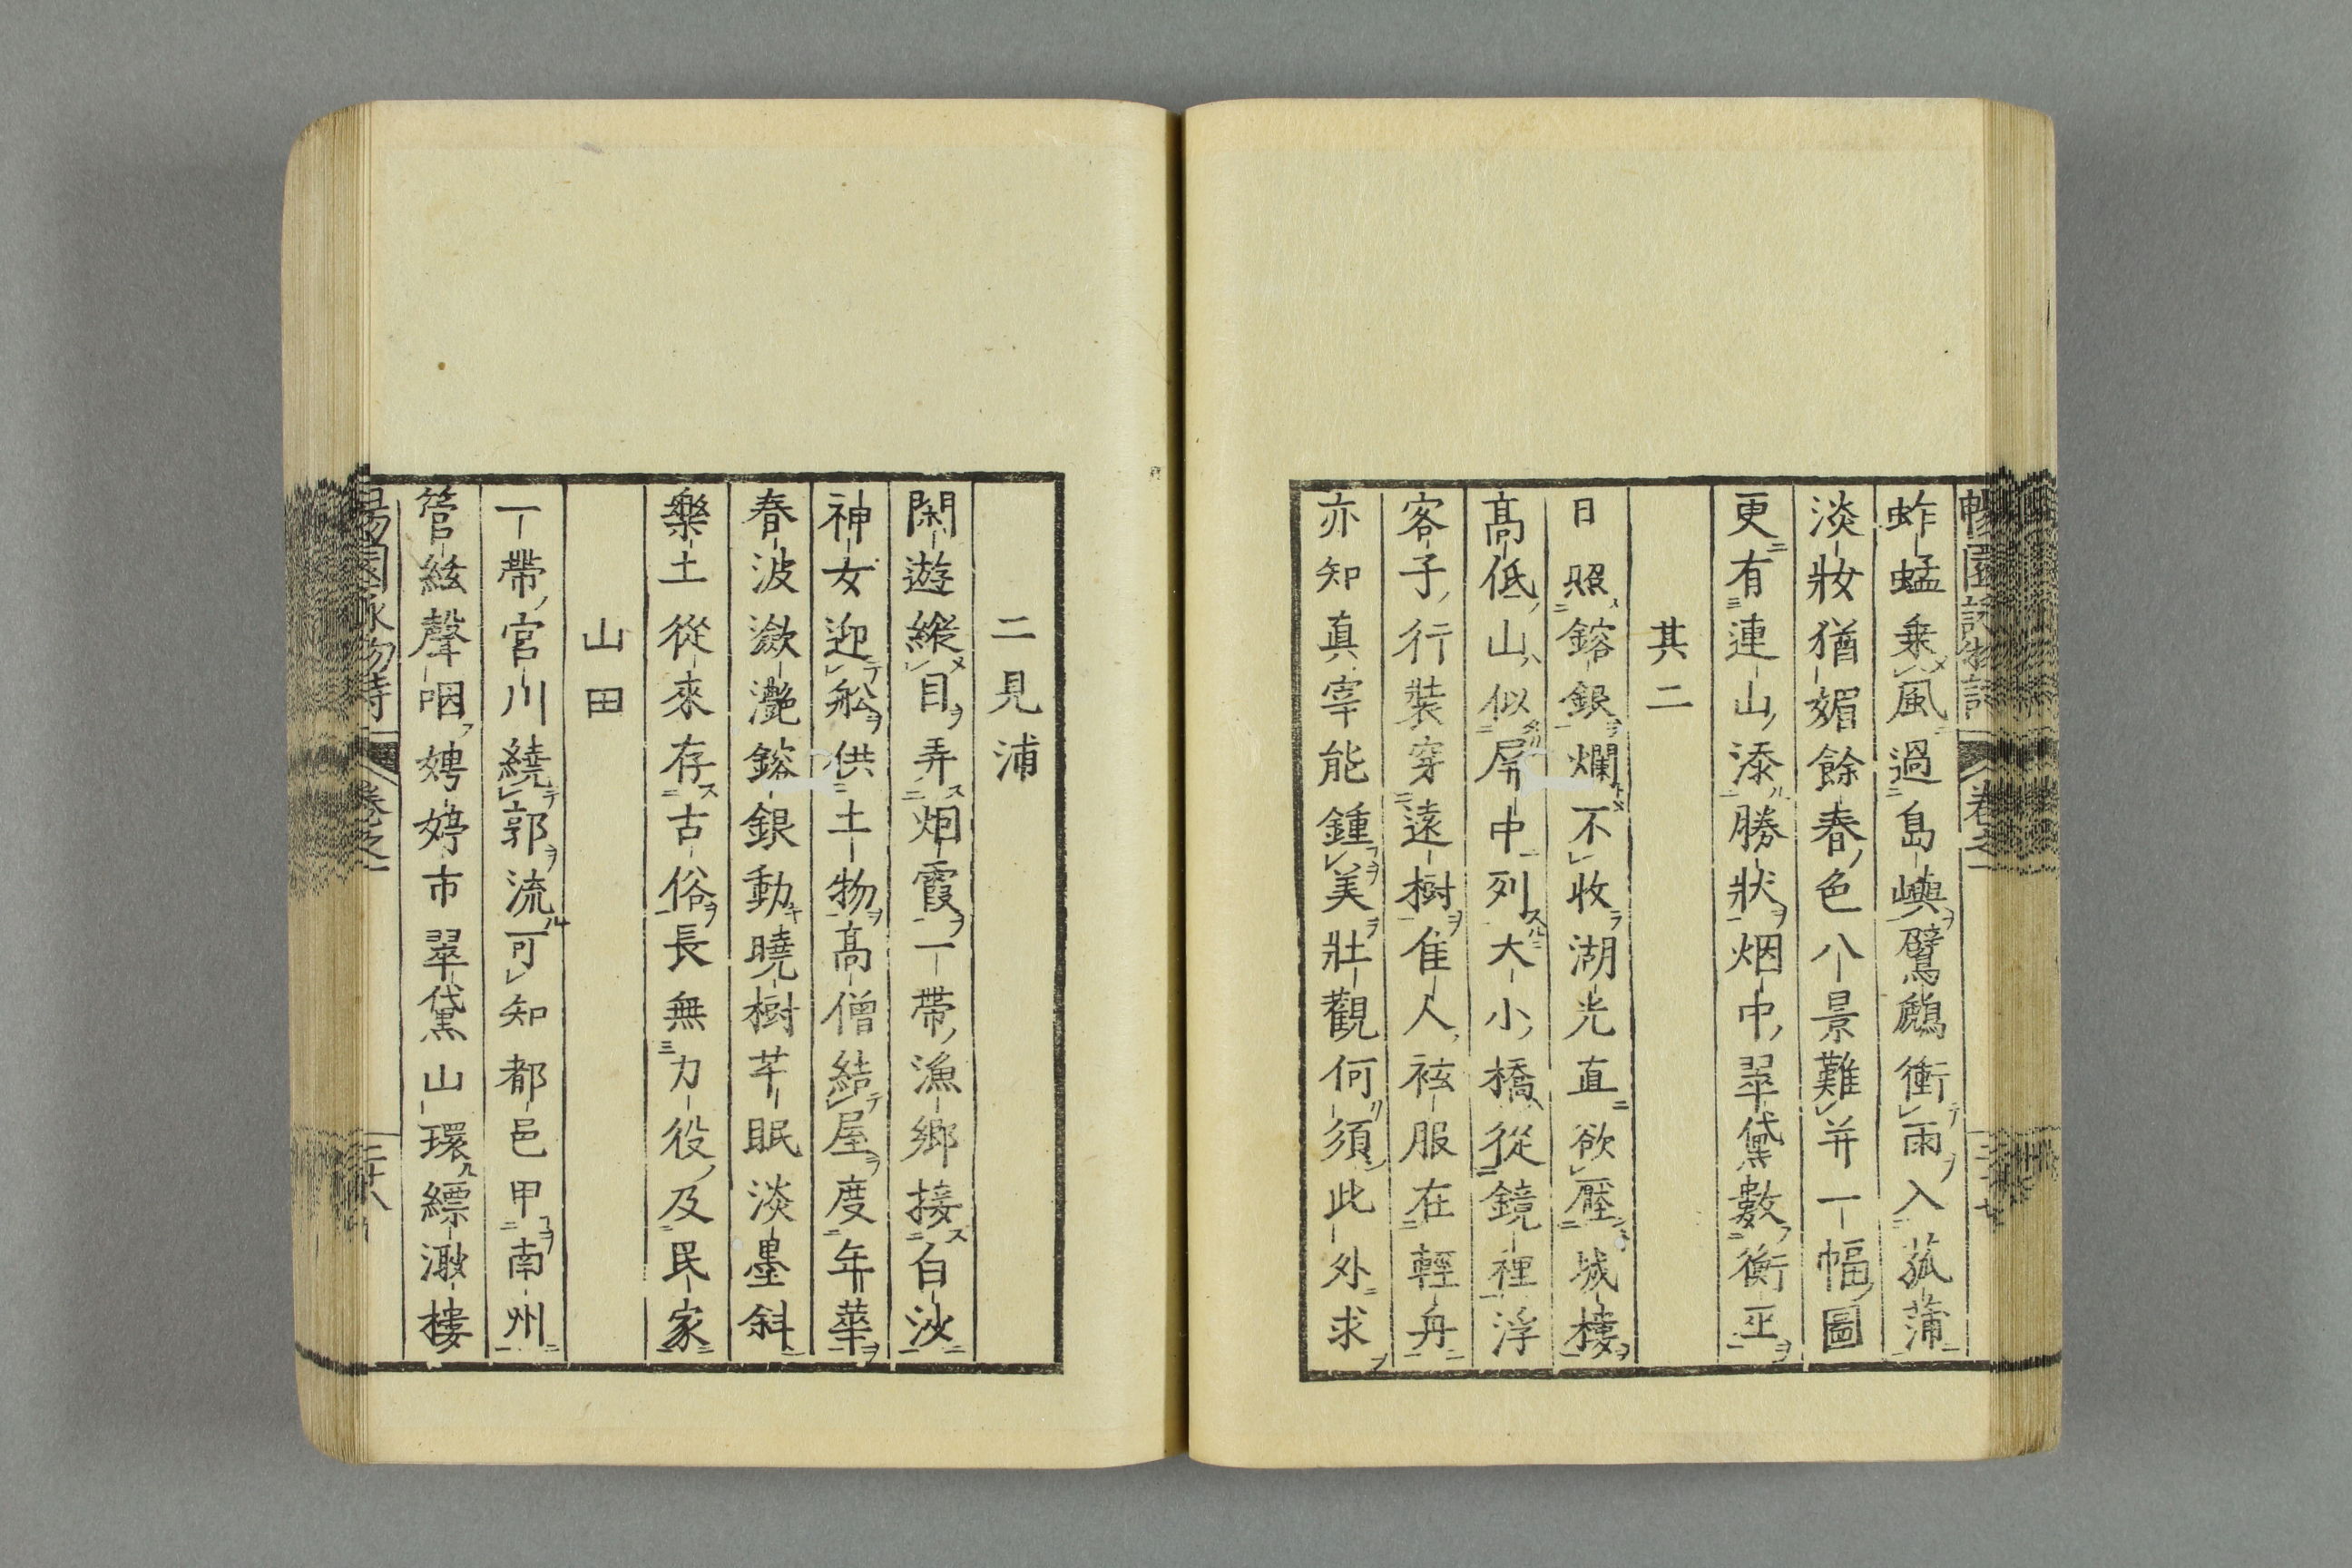 蚱蜢乗風過島嶼鸊鷉衝雨入菰蒲
淡妝猶媚餘春色八景難并一幅圖
更有連山添勝狀烟中翠黛數衡巫
其二
日照鎔銀爛不收湖光直欲壓城樓
高低山似屏中列大小橋從鏡裡浮
客子行裝穿遠樹隹人袨服在輕舟
亦知真宰能鍾美壯觀何須此外求
二見浦
閑遊縱目弄烟霞一帶漁鄉接白沙
神女迎舩供土物高僧結屋度年華
春波瀲灧鎔銀動曉樹芊眠淡墨斜
樂土從來存古俗長無力役及民家
山田
一帶宮川繞郭流可知都邑甲南州
管絃聲咽娉婷市翠黛山環縹渺樓
卷之一
三十八